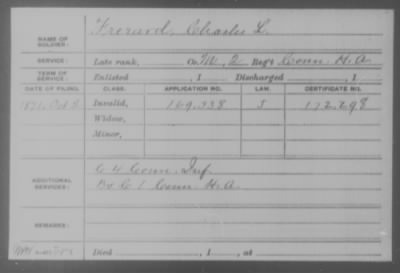 NAME OF SOLDIER: Frerard, Charles L.
SERVICE: Late rank, Co. M, 2 Reg't Conn. H. A.
TERM OF SERVICE: Enlisted , 1 Discharged , 1
DATE OF FILING. CLASS. APPLICATION NO. LAW. CERTIFICATE NO.
1871, Oct Invalid, 169,338 172,298
Widow,
Minor,
ADDITIONAL SERVICES: C 4 Conn. Inf.
C 1 Conn. H. A.
REMARKS:
Died , 1 , at